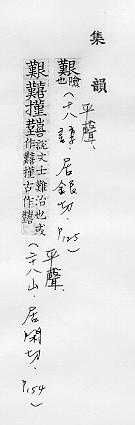 集韻
艱 險也 (平聲、十八諄、居銀切、P.125)
艱囏 說文土難治也或
作囏 古作
(平聲、二十八山、居閑切、P.154)